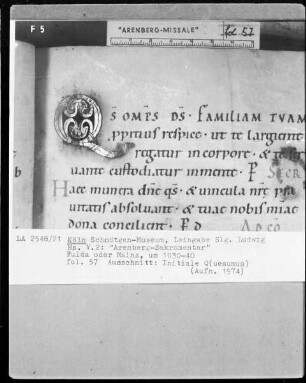 F 5
"ARENBERG-MISSALE"
fol. 57
S OMPS DS FAMILIAM TUAM
ppitius respice · ut te largiente
regatur in corpore · & te
uante custodiatur inmente · P SECR
Haec munera dne qs · & uincula nre
uitatis absoluant · & tuae nobis mi
dona concilient · P D AD CO
LA 2548/21 Köln Schnütgen-Museum, Leihgabe Slg. Ludwig
Hs. V,2: "Arenberg-Sakramentar"
Fulda oder Mainz, um 1030-40
fol. 57 Ausschnitt: Initiale Q(uesumus)
(Aufn. 1974)